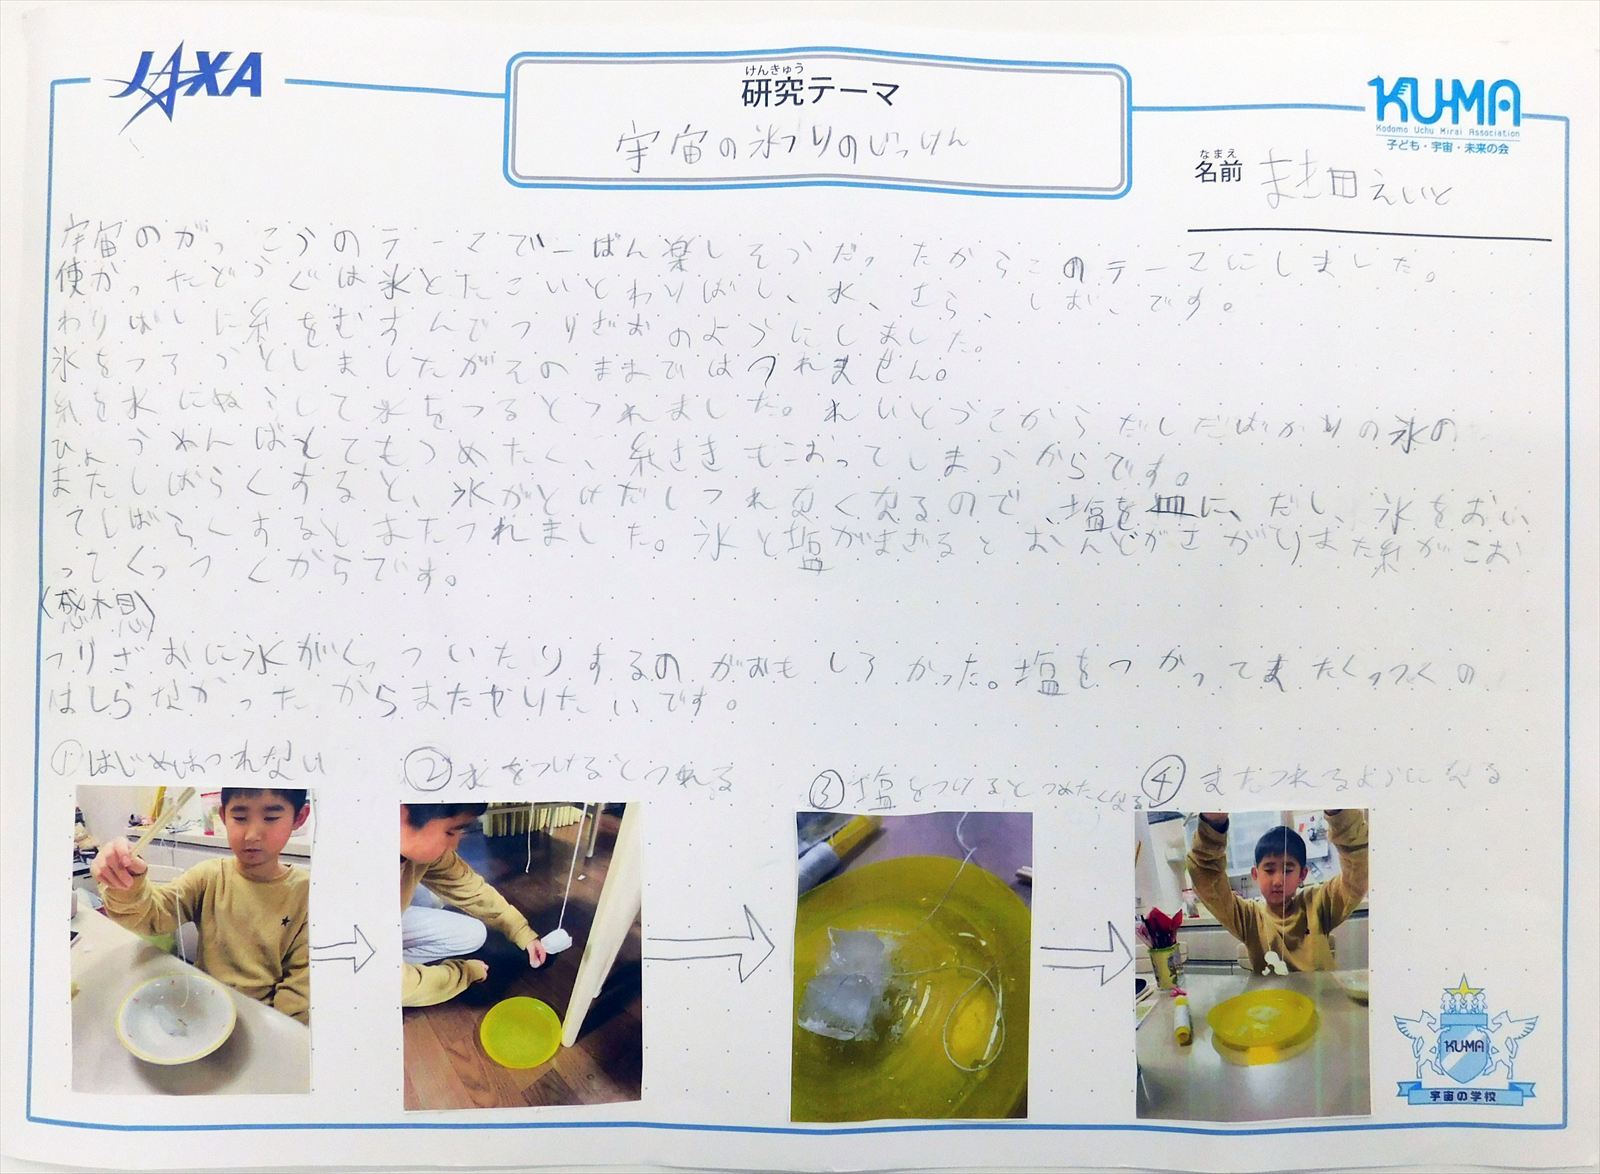 JAXA
けんきゅう
研究テーマ
宇宙の氷つりのじっけん
KU-MA
Kodomo Uchu Mirai Association
子ども・宇宙・未来の会
なまえ
名前 田えいと
宇宙のがっこうのテーマで一ばん楽しそうだったからこのテーマにしました。
使かったどうぐは氷とたこいとわりばし、水、さら、しお、です。
わりばしに糸をむすんでつりざおのようにしました。
氷をつろうとしましたがそのままではつれません。
糸を水にぬらして氷をつるとつれました。れいとうこからだしたばかりの氷の
ひょうめんはとてもつめたく、糸さきもこおってしまうからです。
またしばらくすると、氷がとけだしつれなくなるので、塩を皿に、だし、氷をおい
てしばらくするとまたつれました。氷と塩がまざるとおんどがさがりまた糸がこお
ってくっつくからです。
(感想)
つりざおに氷がくっついたりするのがおもしろかった。塩をつかってまたくっつくの
はしらなかったからまたやりたいです。
①はじめはつれない
②水をつけるとつれる
③塩をつけるとつめたくなる
④またつれるようになる
KU-MA
宇宙の学校